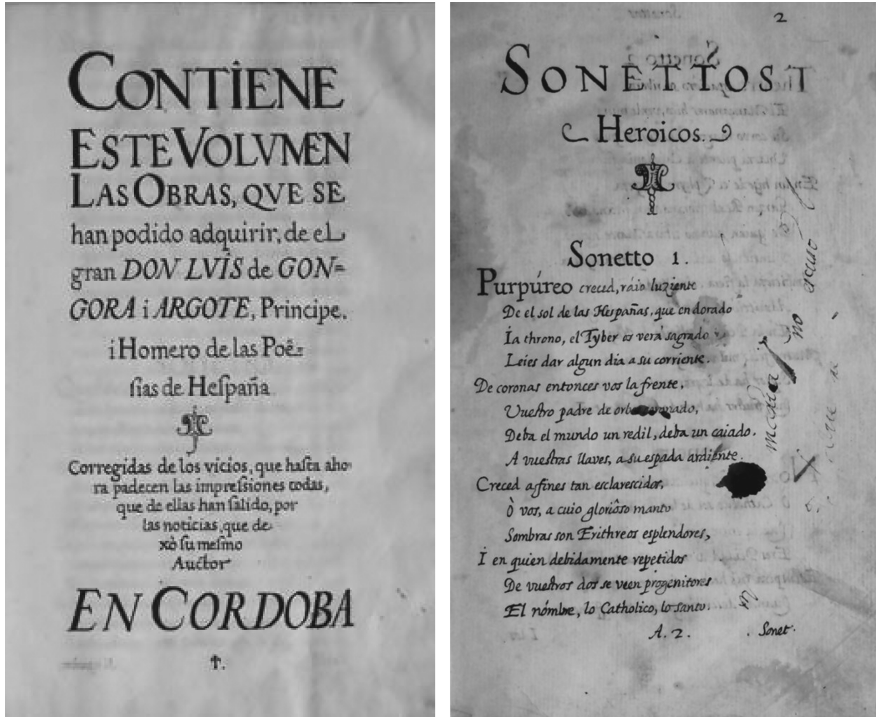 CONTIENE
ESTE VOLVMEN
LAS OBRAS, QVE SE
han podido adquirir, de el
gran DON LVIS de GON=
GORA i ARGOTE, Principe,
i Homero de las Poë=
ſias de Heſpaña
Corregidas de los vicios, que haſta aho
ra padecen las impreſsiones todas,
que de ellas han ſalido, por
las noticias, que de
xò ſu meſmo
Auctor
EN CORDOBA
2
SONETTOS
Heroicos.
Sonetto 1.
Purpúreo creced, ráio luziente
De el sol de las Hespañas, que en dorado
Ía throno, el Tyber os verà sagrado
Leies dar algun dia a su corriente.
De coronas entonces vos la frente,
Vuestro padre de orbes
Deba el mundo un redil, deba un caiado.
A vuestras llaves, a su espada ardiente.
Creced a fines tan esclarescidos,
Ò vos, a cuio glorióso manto
Sombras son Erithreos esplendores,
Í en quien debidamente repetidos
De vuestros dos se veen progenitores
El nómbre, lo Catholico, lo santo.
A. 2. Sonet.